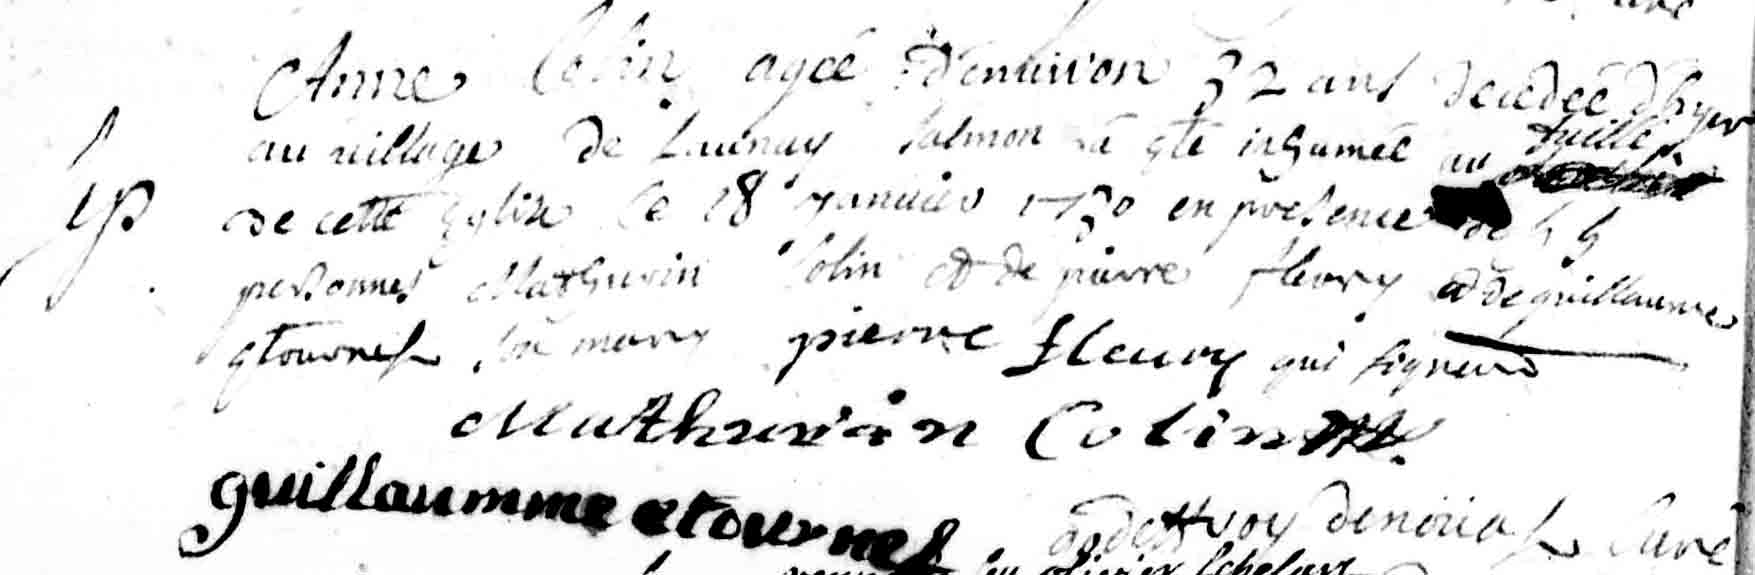 Anne Colin agée d'environ 32 ans decedée d'hyer
au village de Launay Salmon a eté inhumée au
de cette Eglise le 18 janvier 1730 en presence de
personnes Mathurin Colin et de pierre fleury et de guillaume
etournel son mary pierre fleury qui signent
Mathurin Colin
guillaumme etournel
curé